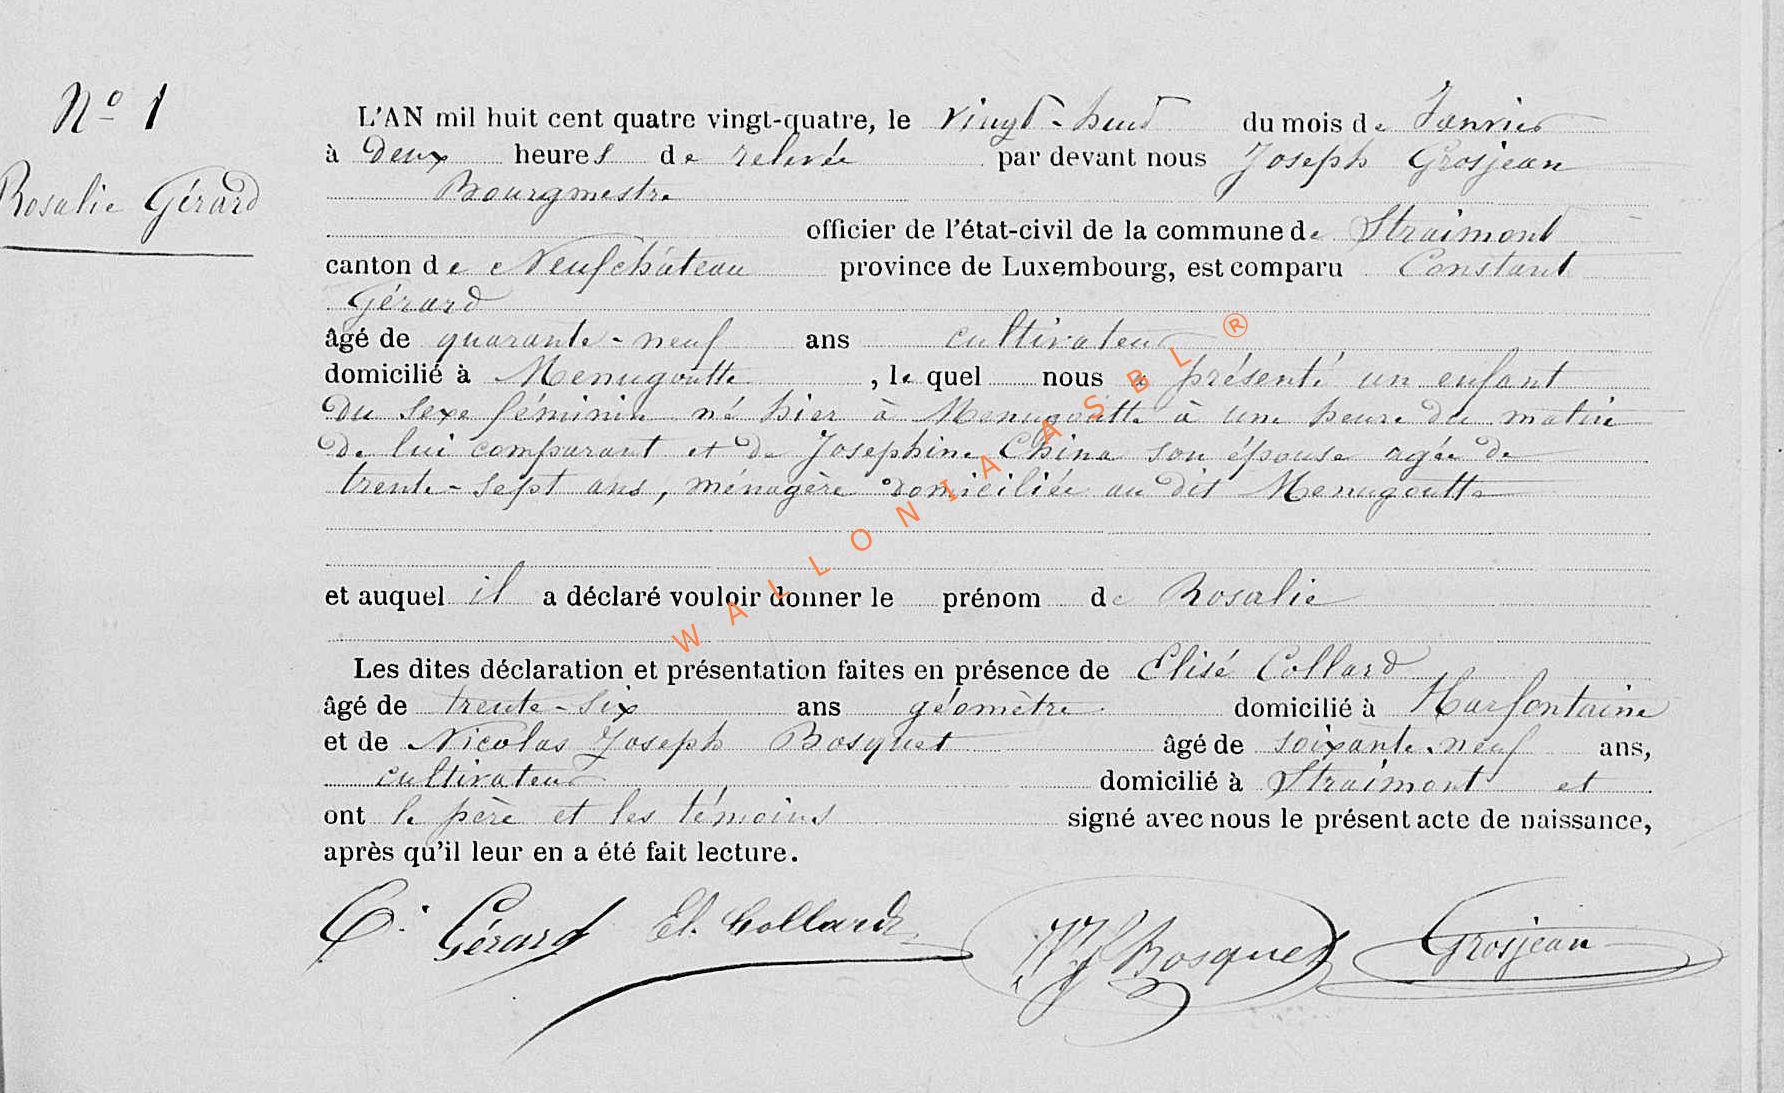 Nº 1
Rosalie Gérard
L'AN mil huit cent quatre vingt-quatre, le vingt-huit du mois de Janvier
à deux heures de relevée par devant nous Joseph Grosjean
Bourgmestre
officier de l'état-civil de la commune de Straimont
canton de Neufchâteau province de Luxembourg, est comparu Constant
Gérard
âgé de quarante-neuf ans cultivateur
domicilié à Menugoutte, le quel nous a présenté un enfant
du sexe féminin né hier à Menugoutte à une heure du matin
de lui comparant et de Josephine China son épouse agée de
trente-sept ans, ménagère domiciliée au dit Menugoutte
et auquel il a déclaré vouloir donner le prénom de Rosalie
Les dites déclaration et présentation faites en présence de Elisé Collard
âgé de trente-six ans géomètre domicilié à Harfontaine
et de Nicolas Joseph Bosquet âgé de soixante-neuf ans,
cultivateur domicilié à Straimont et
ont le père et les témoins signé avec nous le présent acte de naissance,
après qu'il leur en a été fait lecture.
C. Gérard El. Collard NJ Bosquet Grosjean
WALLONIA ASBL ®